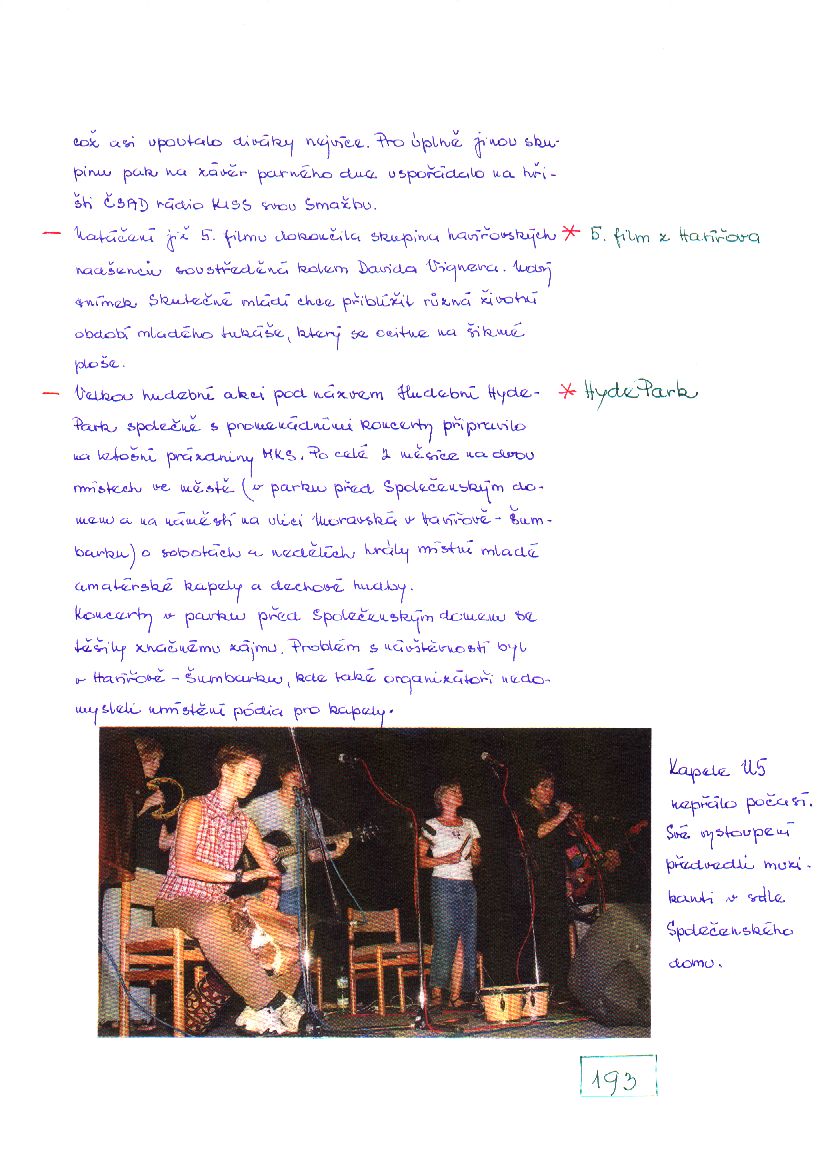 což asi upoutalo diváky nejvíce. Pro úplně jinou sku-
pinu pak na závěr parného dne uspořádalo na hři-
šti ČSAD rádio KISS svou Smažbu.
- Natáčení již 5. filmu dokončila skupina havířovských * 5. film z Havířova
nadšenců soustředěná kolem Davida Vignera. Nový
snímek Skutečné mládí chce přiblížit různá životní
období mladého Lukáše, který se ocitne na šikmé
ploše.
- Velkou hudební akci pod názvem Hudební Hyde- * Hyde Park
Park společně s promenádními koncerty připravilo
na letošní prázdniny MKS. Po celé 2 měsíce na dvou
místech ve městě (v parku před Společenským do-
mem a na náměstí na ulici Moravská v Havířově - Šum-
barku) o sobotách a nedělích hrály místní mladé
amatérské kapely a dechové hudby.
Koncerty v parku před Společenským domem se
těšily značnému zájmu. Problém s návštěvností byl
v Havířově - Šumbarku, kde také organizátoři nedo-
mysleli umístění pódia pro kapely.
Kapele U5
nepřálo počasí.
Své vystoupení
předvedli muzi-
kanti v sále
Společenského
domu.
193